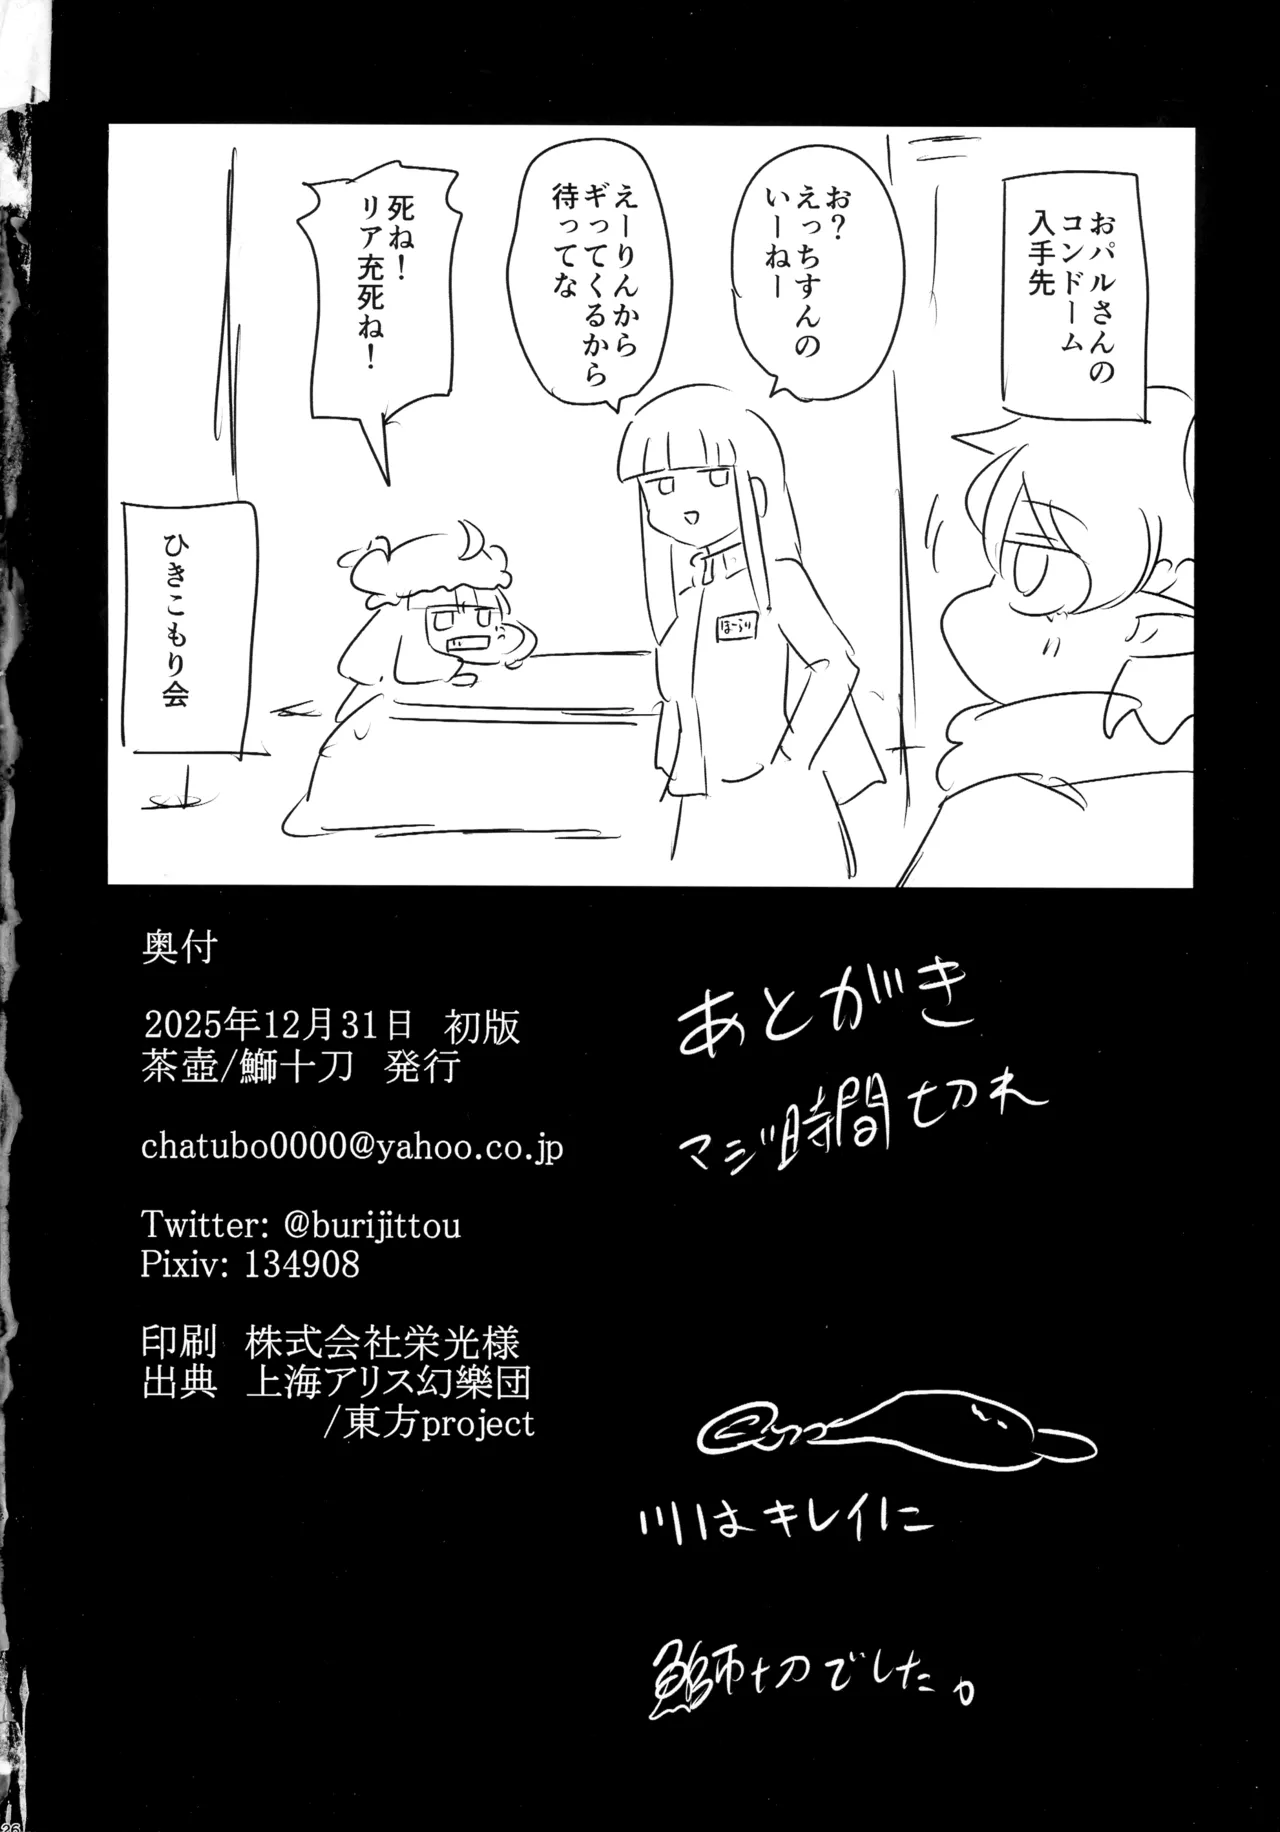 おパルさんの
コンドーム
入手先
お？
えっちすんの
いーねー
えーりんから
ギってくるから
待ってな
死ね！
リア充死ね！
ほーらい
ひきこもり会
奥付
2025年12月31日　初版
茶壺/鰤十刀　発行
chatubo0000@yahoo.co.jp
Twitter: @burijittou
Pixiv: 134908
印刷　株式会社栄光様
出典　上海アリス幻樂団
/東方project
あとがき
マジ時間切れ
川はキレイに
鰤十刀でした。
26